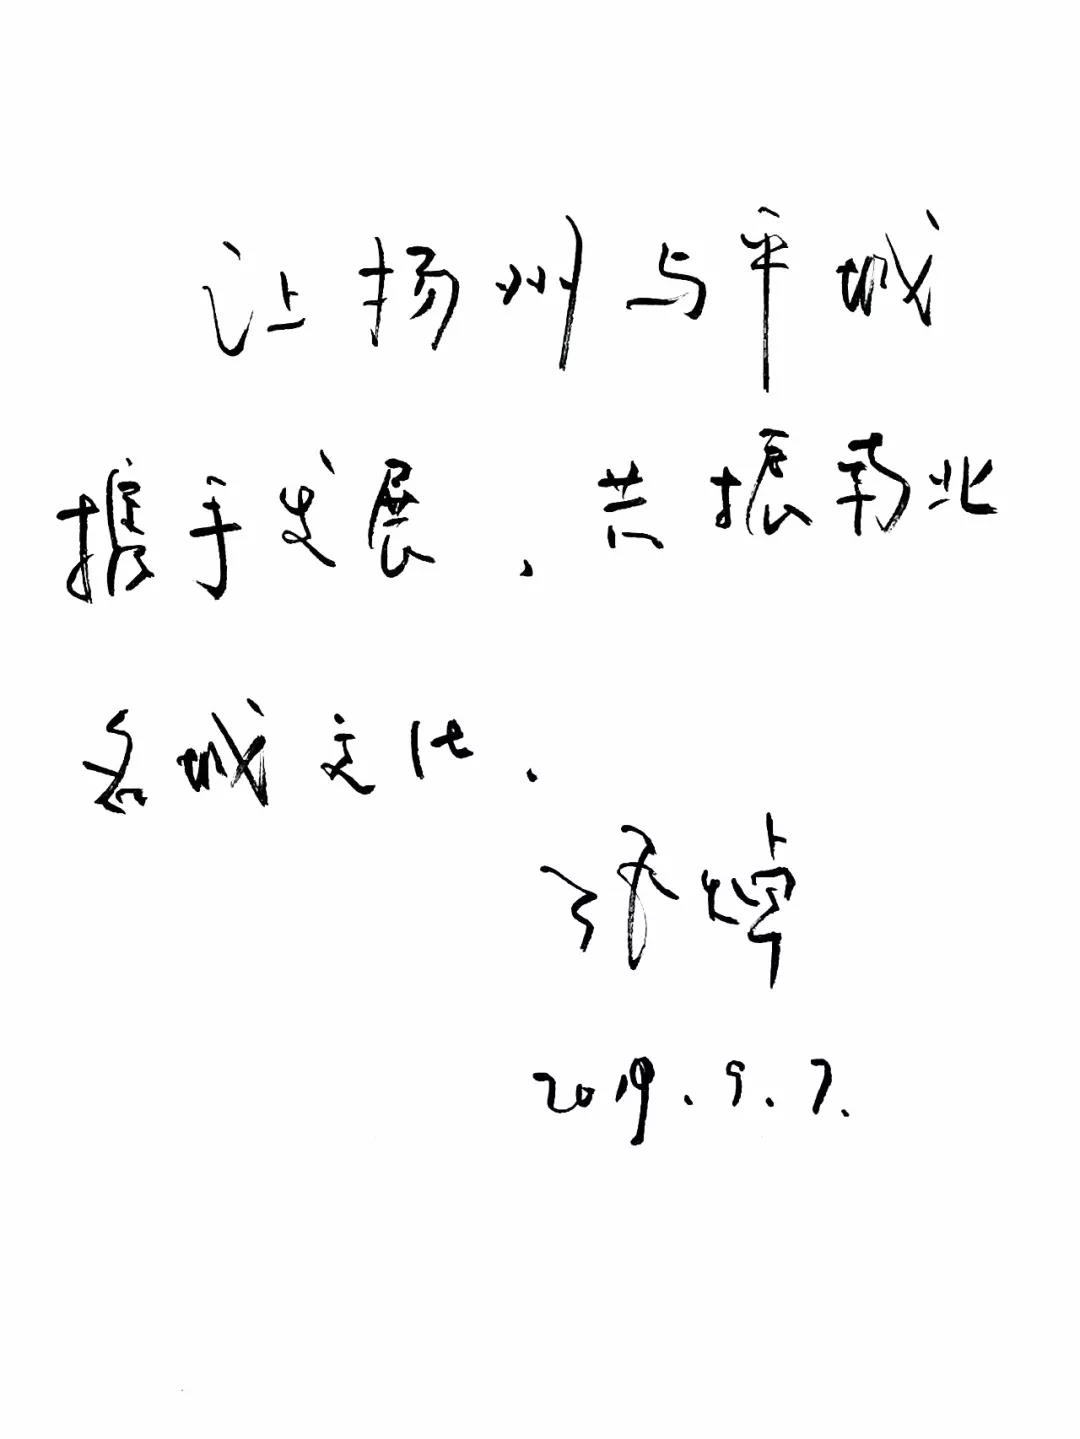 让扬州与平城
携手发展，共振南北
名城文化．
2019.9.7.